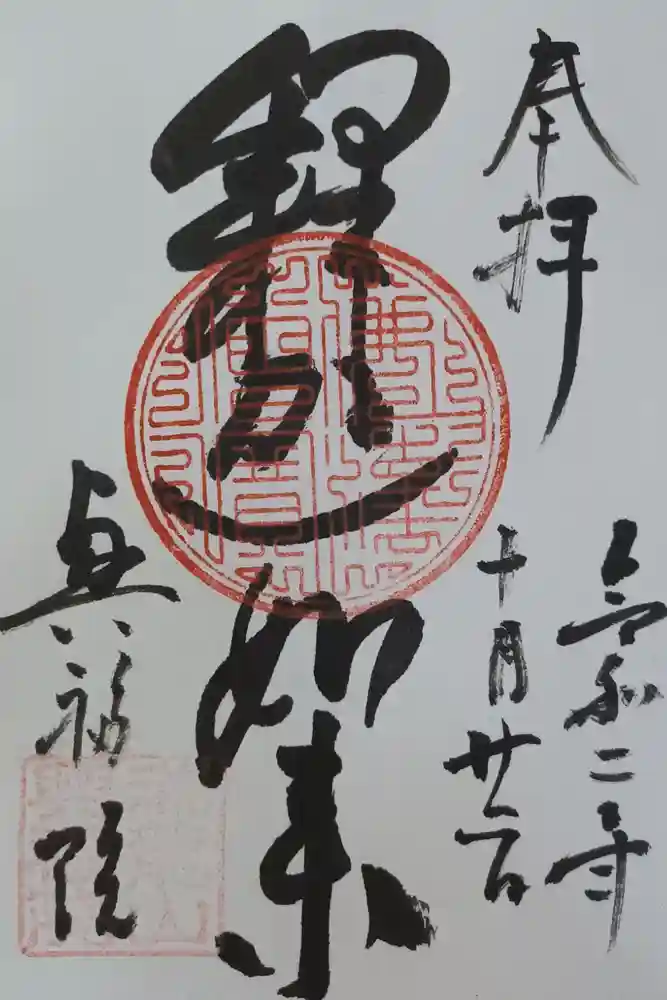 奉拝
令和二年
十月廿日
釈迦如来
真福院